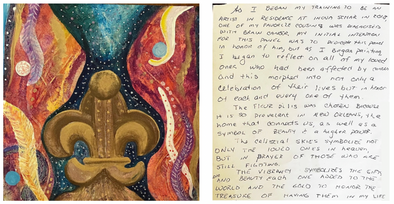 AS I BEGAN MY TRAINING TO BE AN
ARTIST IN RESIDENCE AT INOVA SCHAR IN 2018
ONE OF MY FAVORITE COUSINS WAS DIAGNOSED
WITH BRAIN CANCER. MY INITIAL INTENTION
FOR THIS PANEL WAS TO DEDICATE THIS PANEL
IN HONOR OF HIM, BUT AS I BEGAN PAINTING
I BEGAN TO REFLECT ON ALL OF MY LOVED
ONES WHO HAD BEEN AFFECTED BY CANCER
AND THIS MORPHED INTO NOT ONLY A
CELEBRATION OF THEIR LIVES BUT IN HONOR
OF EACH AND EVERY ONE OF THEM
THE FLEUR DI LIS WAS CHOSEN BECAUSE
IT IS SO PREVALENT IN NEW ORLEANS, THE
HOME THAT CONNECTS US, AS WELL AS A
SYMBOL OF BEAUTY & A HIGHER POWER.
THE CELESTIAL SKIES SYMBOLIZE NOT
ONLY THE LOVED ONES IN HEAVEN,
BUT IN PRAYER OF THOSE WHO ARE
STILL FIGHTING.
THE VIBRANCY SYMBOLIZES THE LIFE
AND BEAUTY EACH ONE ADDED TO THE
WORLD AND THE GOLD TO HONOR THE
TREASURE OF HAVING THEM IN MY LIFE